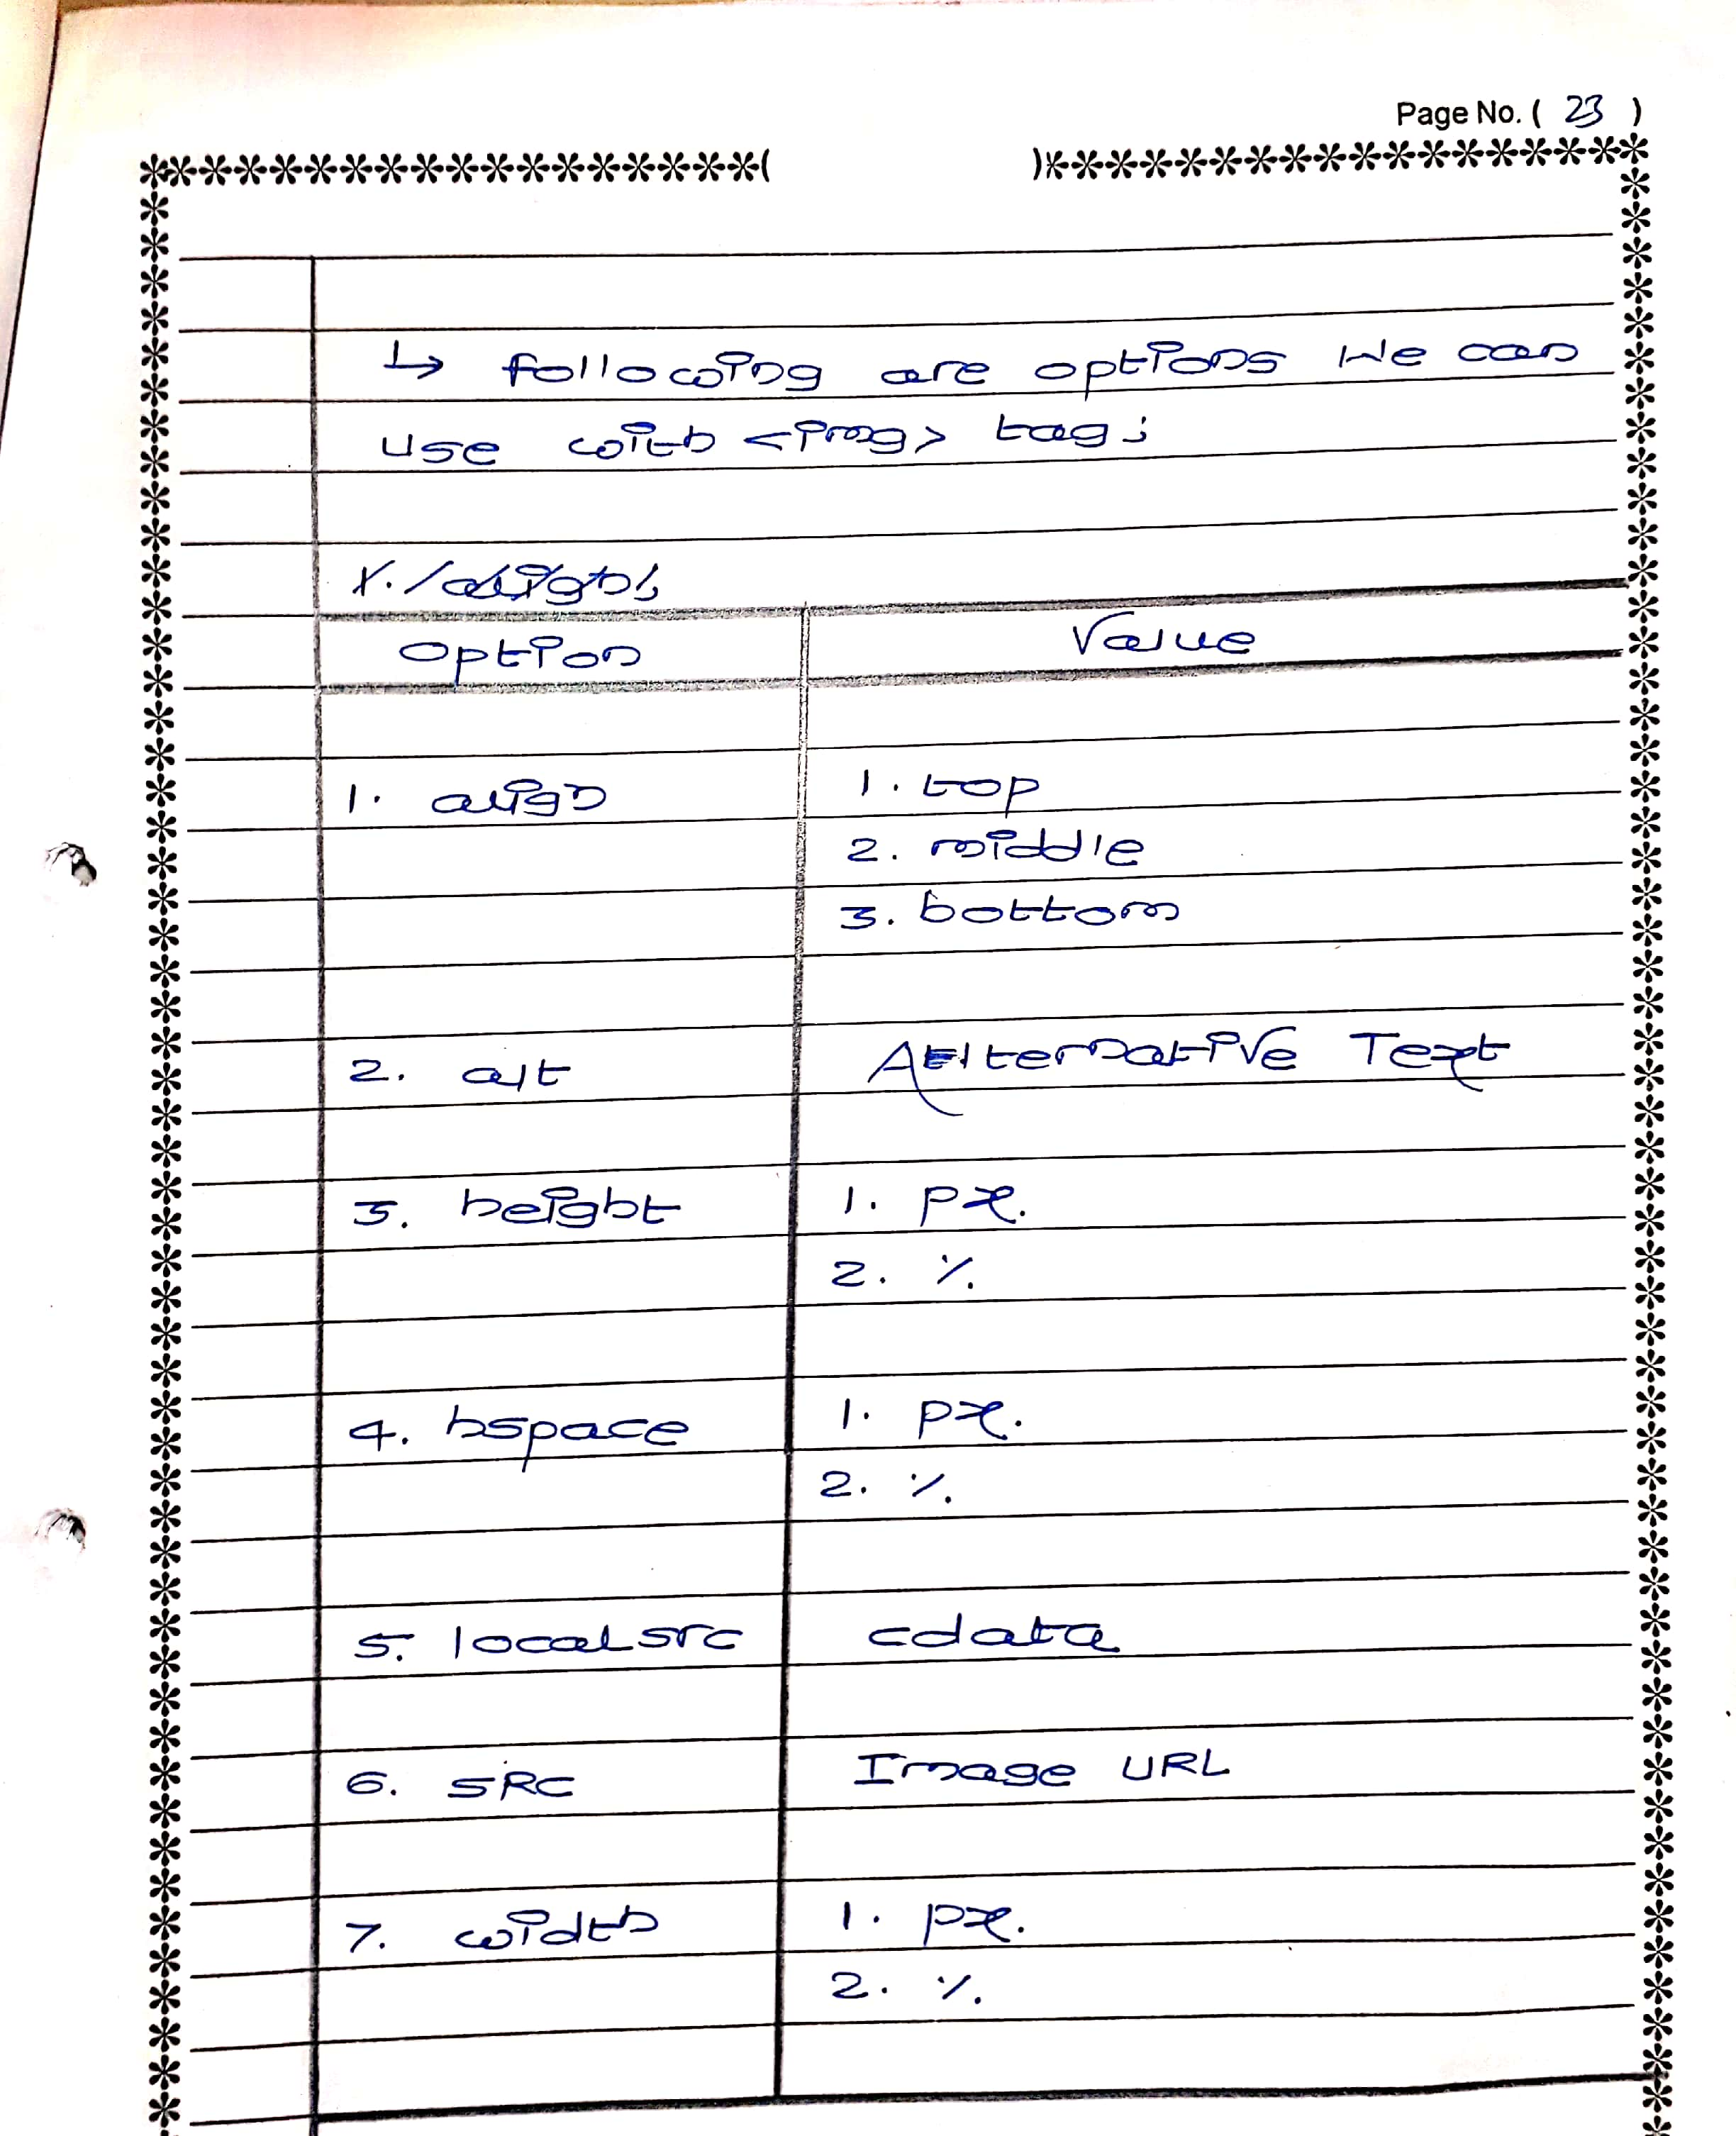 Page No. ( 23 )
↳ following are options we can
use with <img> tag :
1. align :
Option Value
1. align 1. top
2. middle
3. bottom
2. alt Alternative Text
3. height 1. px.
2. %.
4. hspace 1. px.
2. %.
5. localsrc cdata
6. SRC Image URL
7. width 1. px.
2. %.